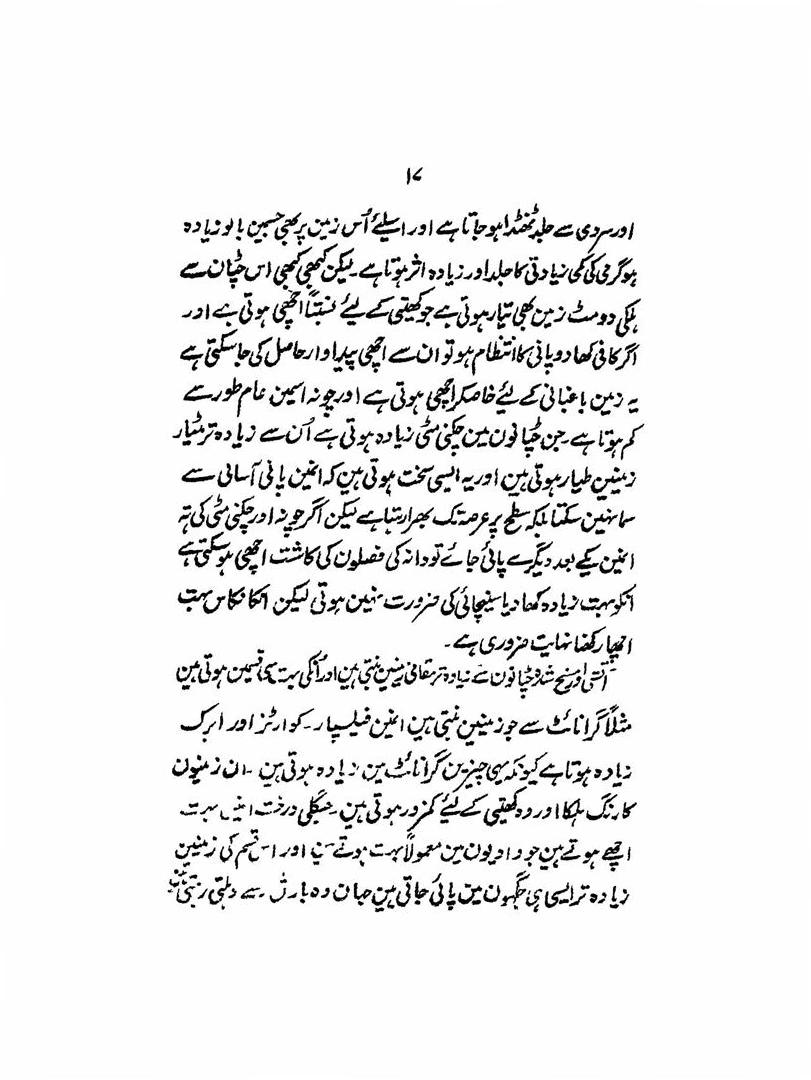 ۱۷
اور سردی سے جلد ٹھنڈا ہو جاتا ہے اور اسلئے اُس زمین پر بھی جسمین بالو زیادہ
ہو گرمی کی کمی زیادتی کا جلد اور زیادہ اثر ہوتا ہے۔ لیکن کبھی کبھی اس چٹان سے
ہلکی دومٹ زمین بھی تیار ہوتی ہے جو کھیتی کے لیئے نسبتاً اچھی ہوتی ہے اور
اگر کافی کھاد و پانی کا انتظام ہو تو ان سے اچھی پیداوار حاصل کی جا سکتی ہے
یہ زمین باغبانی کے لیئے خاصکر اچھی ہوتی ہے اور چونہ اسمین عام طور سے
کم ہوتا ہے۔ جن چٹانون مین چکنی مٹی زیادہ ہوتی ہے اُن سے زیادہ تر مٹیار
زمینین طیار ہوتی ہین اور یہ ایسی سخت ہوتی ہین کہ انمین پانی آسانی سے
سما نہین سکتا بلکہ سطح پر عرصہ تک بھرا رہتا ہے لیکن اگر چونہ اور چکنی مٹی کی تہ
انمین یکے بعد دیگرے پائی جائے تو دانہ کی فصلون کی کاشت اچھی ہو سکتی ہے
انکو بہت زیادہ کھاد یا سینچائی کی ضرورت نہین ہوتی لیکن انکا نکاس بہت
اچھا رکھنا نہایت ضروری ہے۔
آتشی اور مسخ شدہ چٹانون سے زیادہ تر مقامی زمینین بنتی ہین اور اُنکی بہت سی قسمین ہوتی ہین
مثلاً گرانائٹ سے جو زمینین بنتی ہین انمین فیلسپار۔ کوارٹز اور ابرک
زیادہ ہوتا ہے کیونکہ یہی چیزین گرانائٹ مین زیادہ ہوتی ہین۔ ان زمینون
کا رنگ ہلکا اور وہ کھیتی کے لیئے کمزور ہوتی ہین۔ جنگلی درخت انمین بہت
اچھے ہوتے ہین جو وادیون مین معمولاً بہت ہوتے ہین اور اس قسم کی زمینین
زیادہ تر ایسی ہی جگہون مین پائی جاتی ہین جہان وہ بارش سے دہلتی رہتی ہین